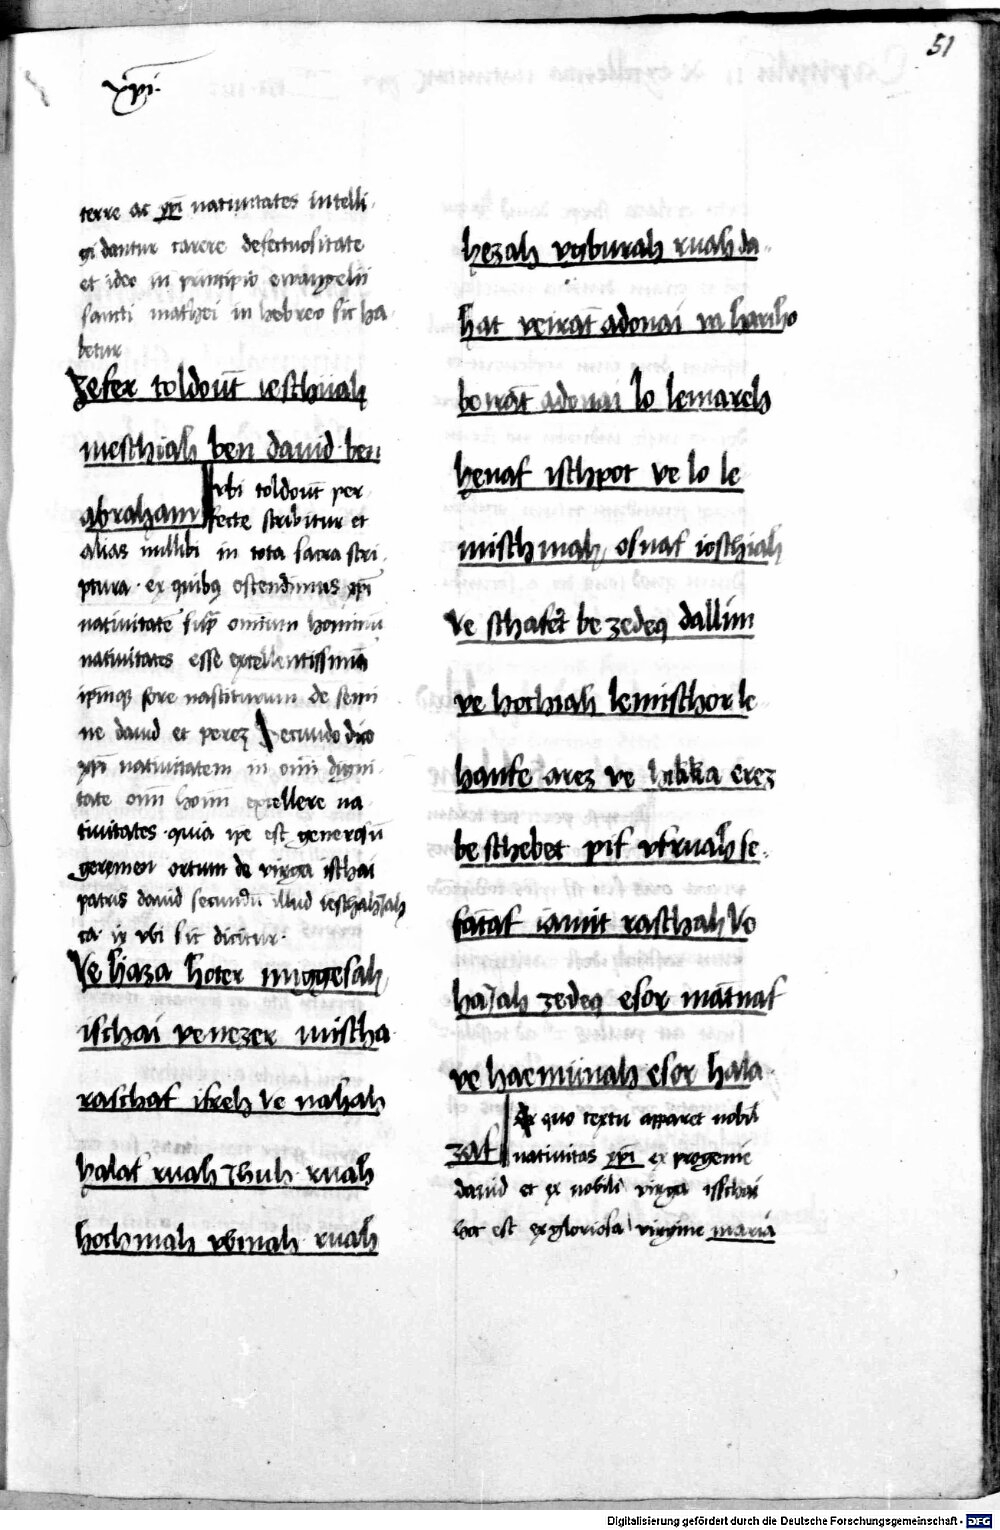 51
xpi.
terre ac xpi natiuitates intelli
gi dantur carere defectuositate
et ideo in principio ewangelii
sancti mathei in hebreo sic ha
betur
Zefer toldout ieschuah
meschiah ben dauid ben
abraham Vbi toldout per
fecte scribitur et
alias nullibi in tota sacra scri
ptura. ex quibus ostendimus xpi
natiuitatem sup omnium hominum
natiuitates esse excellentissimam
ipsumque fore nasciturum de semi
ne dauid et perez Secundo dico
xpi natiuitatem in omni digni
tate omnium hominum excellere na
tiuitates. quia ipse est generosum
germen ortum de virga ischai
patris dauid secundum illud ieschahiah
ca. ix vbi sic dicitur.
Ve haza hoter miggesah
ischai venezer mischa
raschaf ifreh ve nahah
halaf ruah Ihuh. ruah
hochmah vbinah. ruah
hezah vgburah ruah da
hat veirat adonai va hariho
boirat adonai lo lemareh
henaf ischpot ve lo le
mischmah, osnaf ioschiah
Ve schafet be zedeq dallim
ve hochiah lemischor le
hanfe arez ve hikka erez
be schebet pif vfruah se
fataf iamit raschah Ve
haiah zedeq esor matnaf
ve haemunah esor hala
zaf Ex quo textu apparet nobilis
natiuitas xpi ex progenie
dauid et ex nobili virga isschai
hoc est ex gloriosa virgine maria
Digitalisierung gefördert durch die Deutsche Forschungsgemeinschaft - DFG